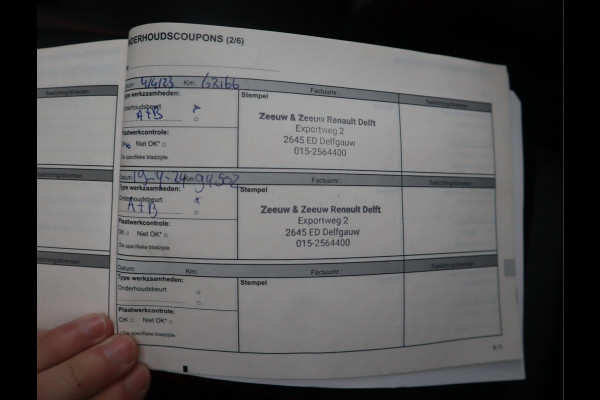 NDERHOUDSCOUPONS (2/6)
Datum: 4/4/23 Km: 62166 Factuurnr.:
Type werkzaamheden: Stempel
Onderhoudsbeurt
A+B
Plaatwerkcontrole:
OK Niet OK*
*Zie specifieke bladzijde
Zeeuw & Zeeuw Renault Delft
Exportweg 2
2645 ED Delfgauw
015-2564400
Datum: 19-4-24 94502 Factuurnr.:
Type werkzaamheden: Stempel
Onderhoudsbeurt
A+B
Plaatwerkcontrole:
OK Niet OK*
*Zie specifieke bladzijde
Zeeuw & Zeeuw Renault Delft
Exportweg 2
2645 ED Delfgauw
015-2564400
Datum: Km: Factuurnr.:
Type werkzaamheden: Stempel
Onderhoudsbeurt
Plaatwerkcontrole:
OK Niet OK*
*Zie specifieke bladzijde